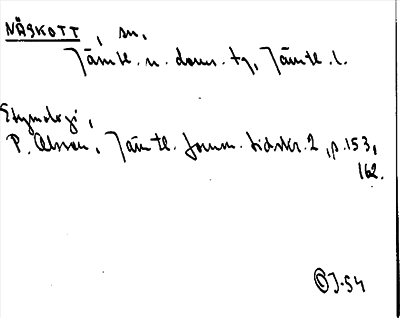 NÄSKOTT, sn,
Jämtl. n. doms. tg, Jämtl. l.
Etymologi,
P. Olsson, Jämtl. fornm. tidskr. 2, p. 153,
162.
J-54